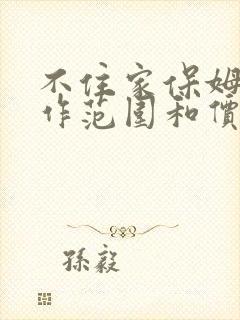 不住家保姆
作范围和價
孫毅